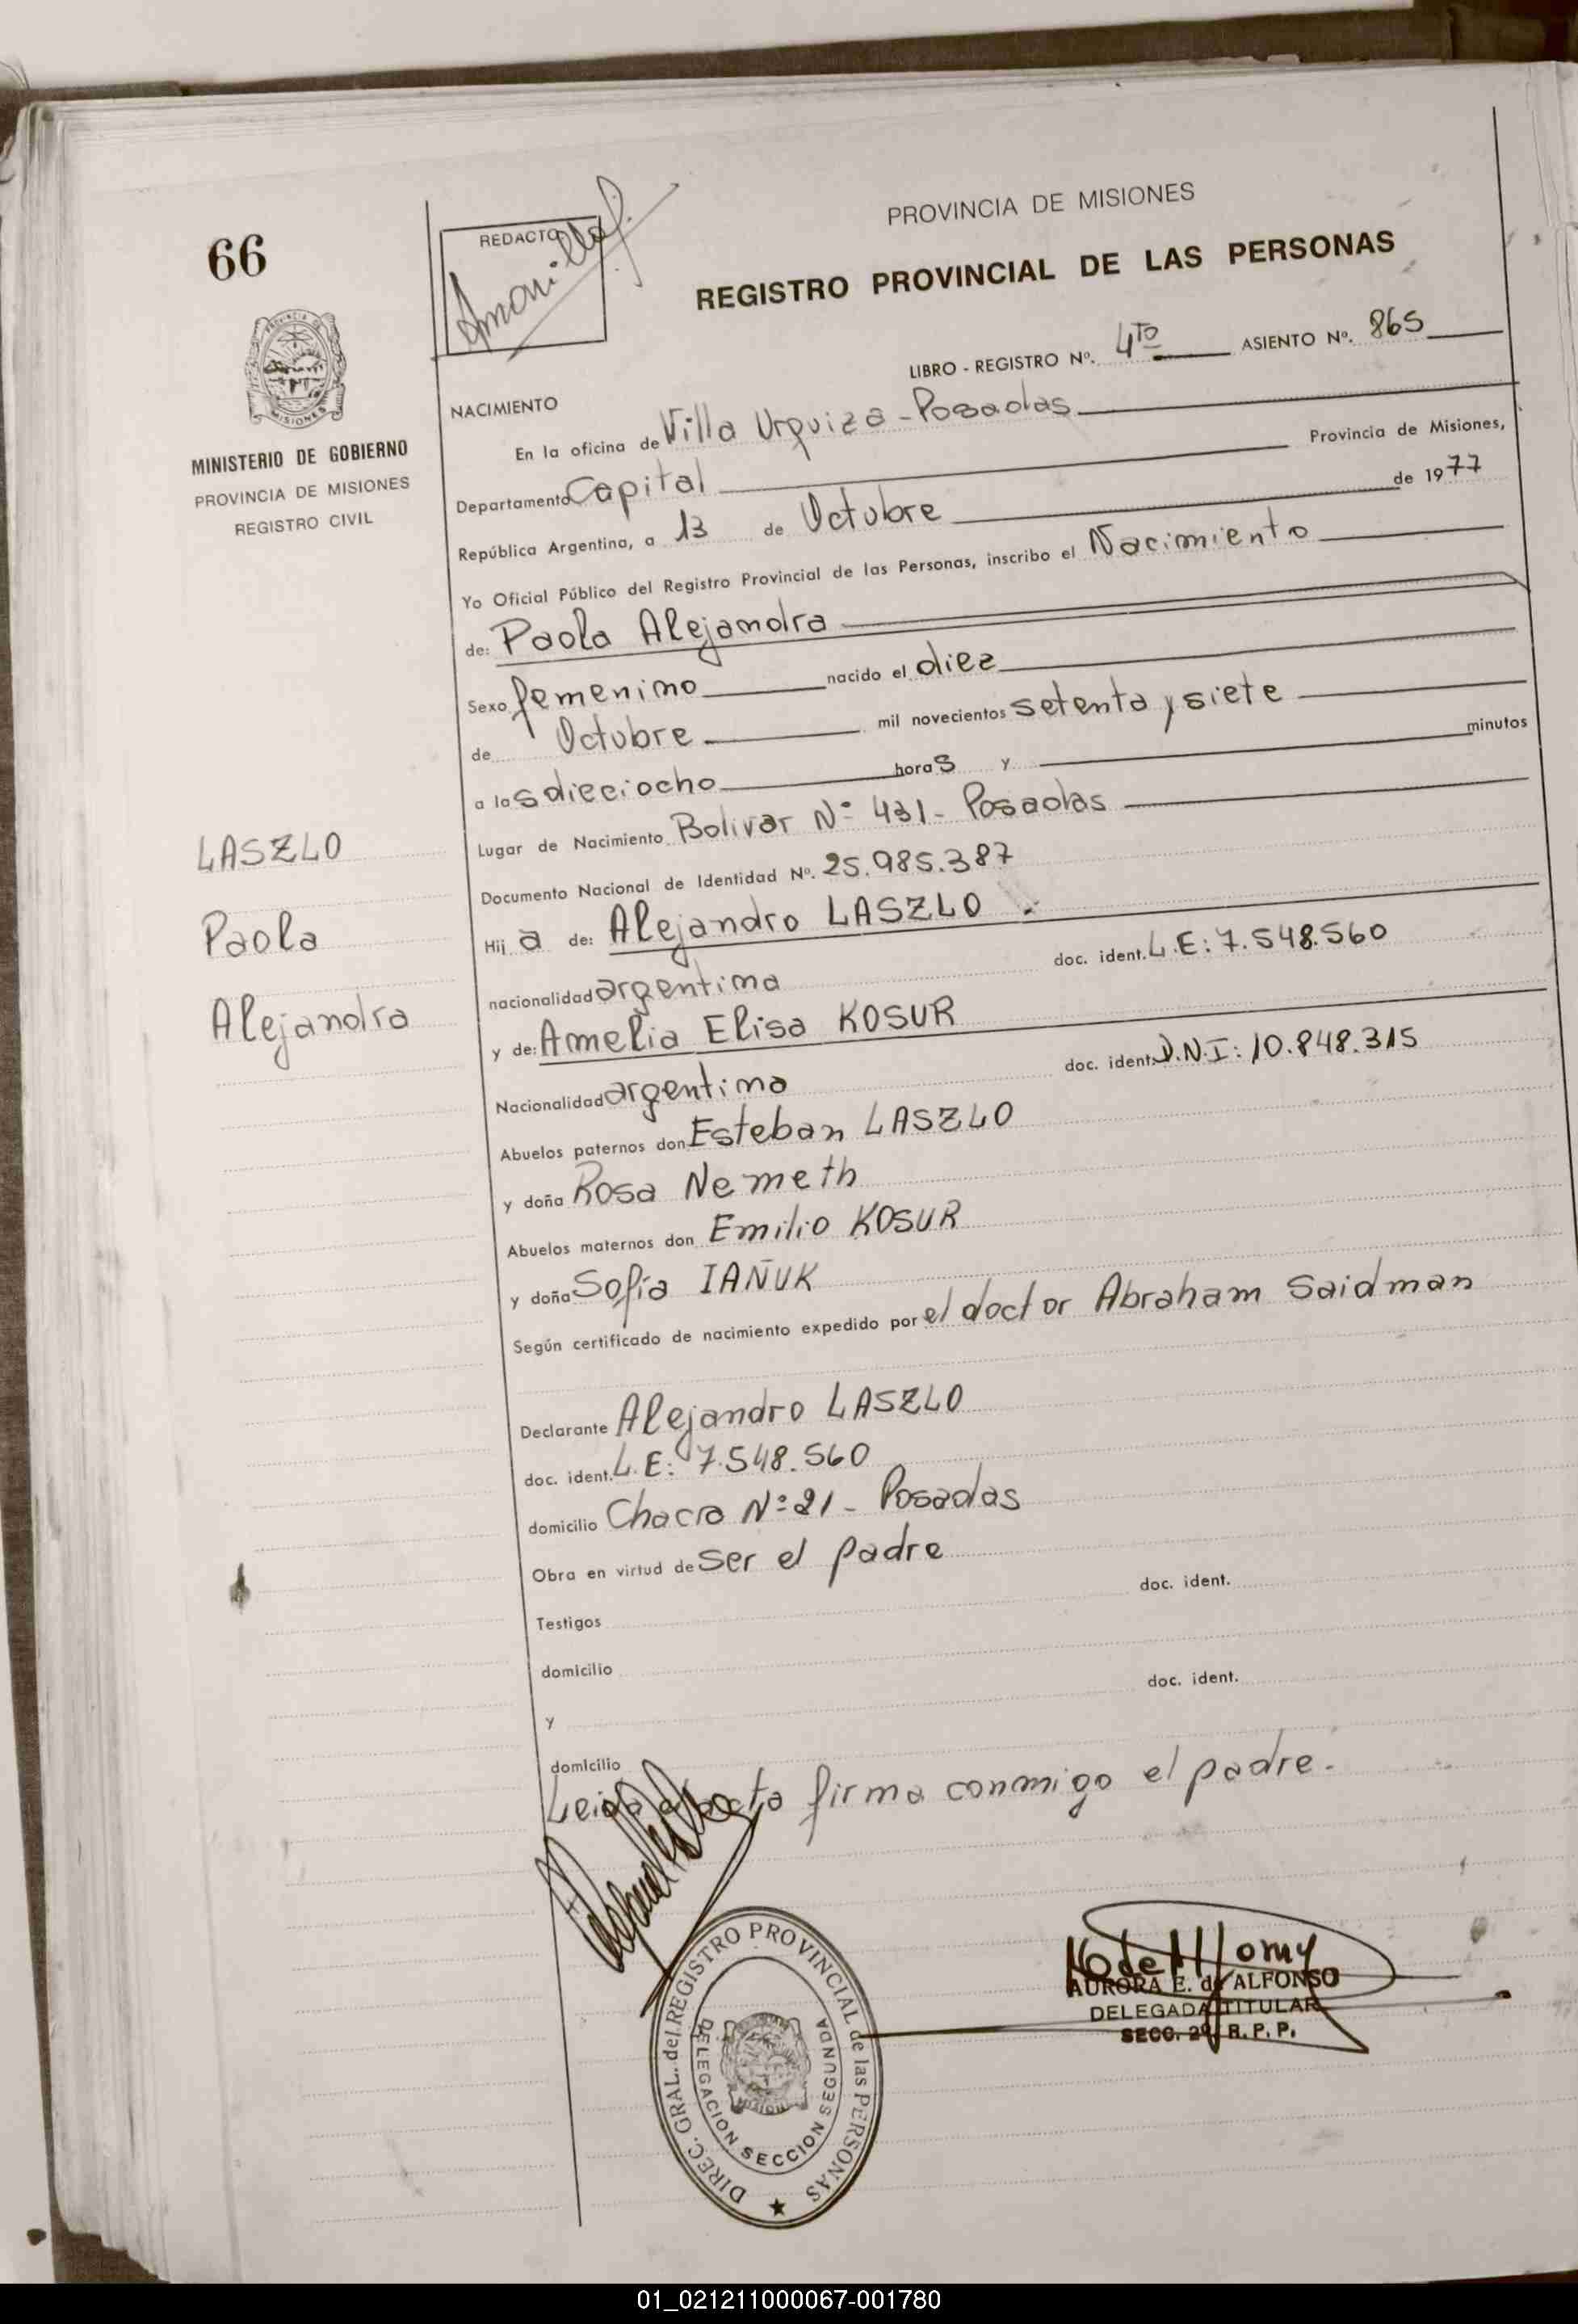 66
REDACTO
PROVINCIA DE MISIONES
REGISTRO PROVINCIAL DE LAS PERSONAS
PROVINCIA DE
MISIONES
MINISTERIO DE GOBIERNO
PROVINCIA DE MISIONES
REGISTRO CIVIL
LIBRO - REGISTRO Nº. 4TO ASIENTO Nº. 865
NACIMIENTO
En la oficina de Villa Urquiza - Posadas
Departamento Capital Provincia de Misiones,
República Argentina, a 13 de Octubre de 1977
Yo Oficial Público del Registro Provincial de las Personas, inscribo el Nacimiento
de: Paola Alejandra
Sexo femenino nacido el diez
de Octubre mil novecientos setenta y siete
a las dieciocho horas y minutos
Lugar de Nacimiento Bolivar Nº 431 - Posadas
Documento Nacional de Identidad Nº. 25.985.387
Hij a de: Alejandro LASZLO
nacionalidad argentina doc. ident. L.E: 7.548.560
y de: Amelia Elisa KOSUR
Nacionalidad argentina doc. ident. D.N.I: 10.848.315
Abuelos paternos don Esteban LASZLO
y doña Rosa Nemeth
Abuelos maternos don Emilio KOSUR
y doña Sofia IAÑUK
Según certificado de nacimiento expedido por el doctor Abraham Saidman
Declarante Alejandro LASZLO
doc. ident. L.E: 7.548.560
domicilio Chacra Nº 21 - Posadas
Obra en virtud de ser el padre
Testigos doc. ident.
domicilio
y doc. ident.
domicilio
Leida el acta firma conmigo el padre.
LASZLO
Paola
Alejandra
DIREC. GRAL. del REGISTRO PROVINCIAL de las PERSONAS
DELEGACION SECCION SEGUNDA
AURORA E. de ALFONSO
DELEGADA TITULAR
SECC. 2º R. P. P.
01_021211000067-001780